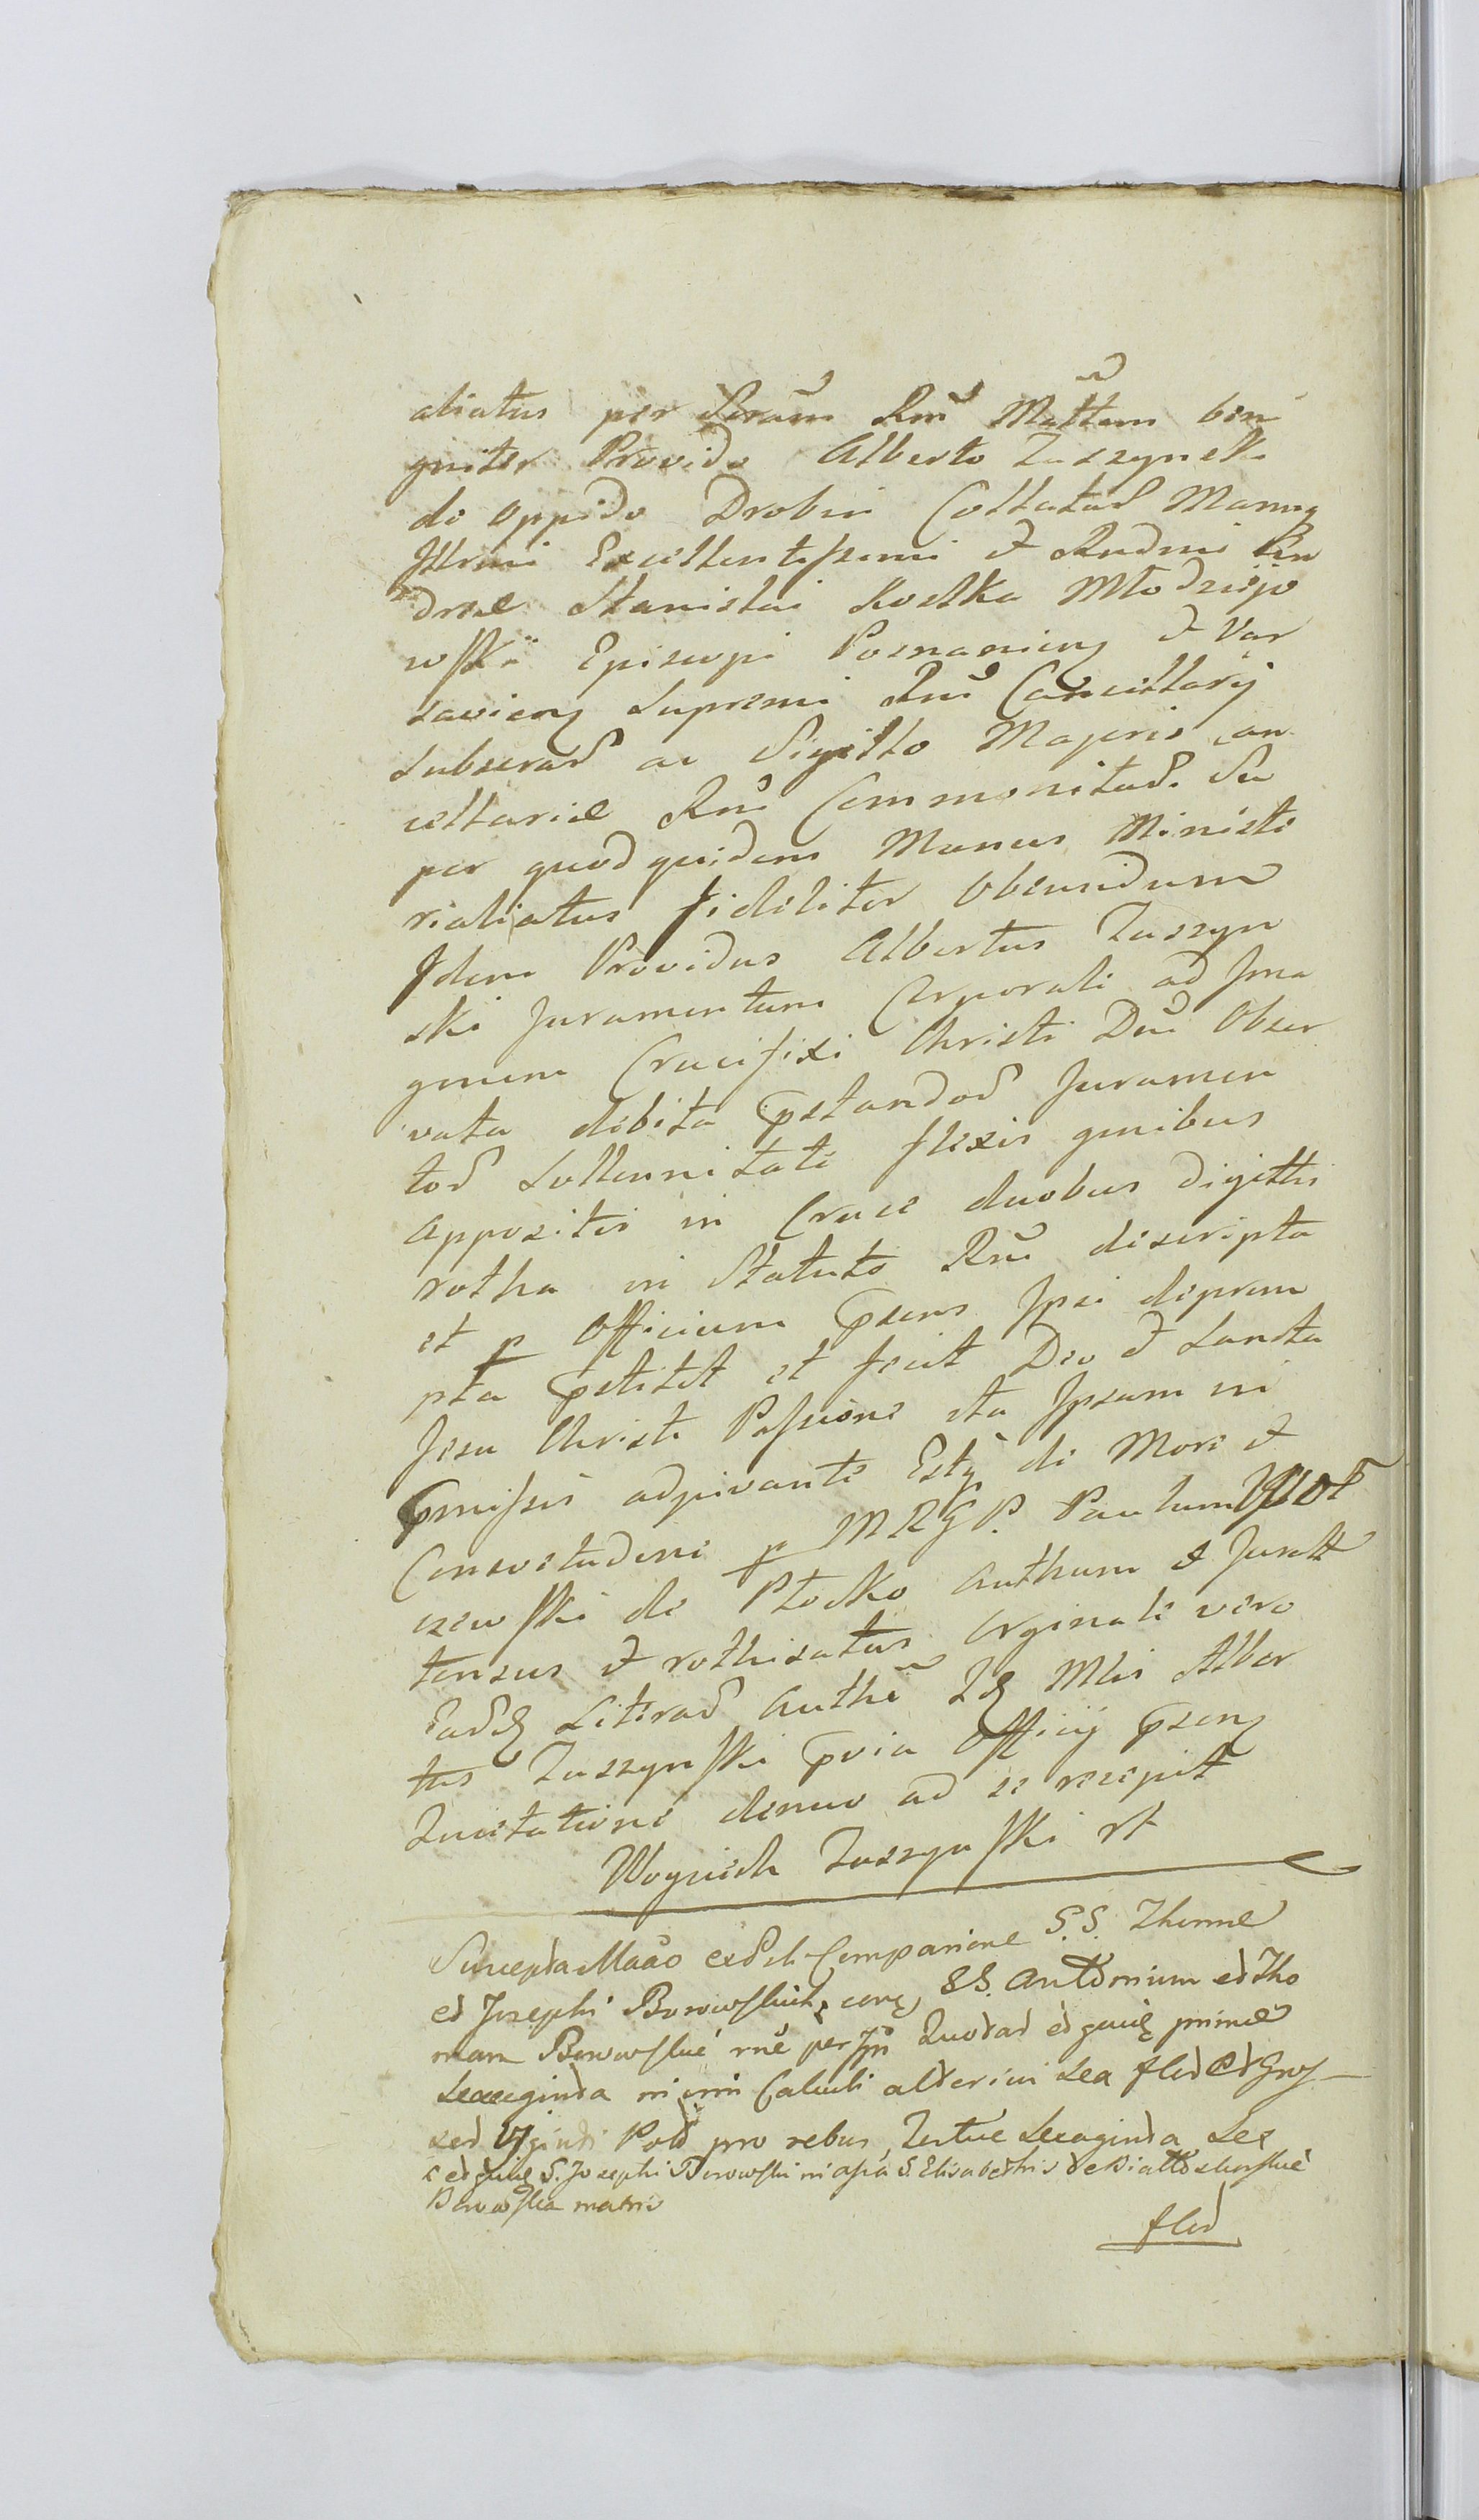 aliatus per Seram Rm Mattem beni
gniter Provido Alberto Zaszynski
de oppido Drobin Collatas Manu
Illmi Excellentissimi et Rndmi An
dreæ Stanislai Kostka Młodziejo
wski Episcopi Posnanien et Var
savien Supremi Rni Cancellarij
Subscras ac Sigillo Majoris Can
cellariæ Rni Commonitas. Su
per quod quidem Munus Ministe
rialiatus fideliter obeundum
Idem Providus Albertus Zaszyn
ski Juramentum Corporale ad Ima
ginem Crucifixi Christi Dni Obser
vata debita pstandos Juramen
tos Sollennitate flexis genibus
appositis in Cruce duobus digittis
rotha in Statuto Rni descripta
et p Officium psens Ipsi deprom
pta pstitit et fecit Deo et Sancta
Jesu Christi Passione ita Ipsum in
pmissis adjuvante Estq de More et
Consvetudine p MRGP. Paulum
czewski de Płocko Authum et Jurat
tensus et rothisatus orginale vero
Literas Authen Idem Mlis Alber
tus Zaszynski pvia Officij psen
Quietatione denuo ad se recepit
Woyciech Zaszynski rt
Suscepta Comparione S.S. Thomæ
et Josephi Borowskich, S.S. Antonium et Tho
mam Borowskie rne per Quotas et primæ
Sexaginta in Calculi alterius Sex flor et Gros
sos Viginti Pol pro rebus, Tertiæ Sexaginta Sex
S. Josephi Borowski S. Elisabethis de
Borowska matris
flor